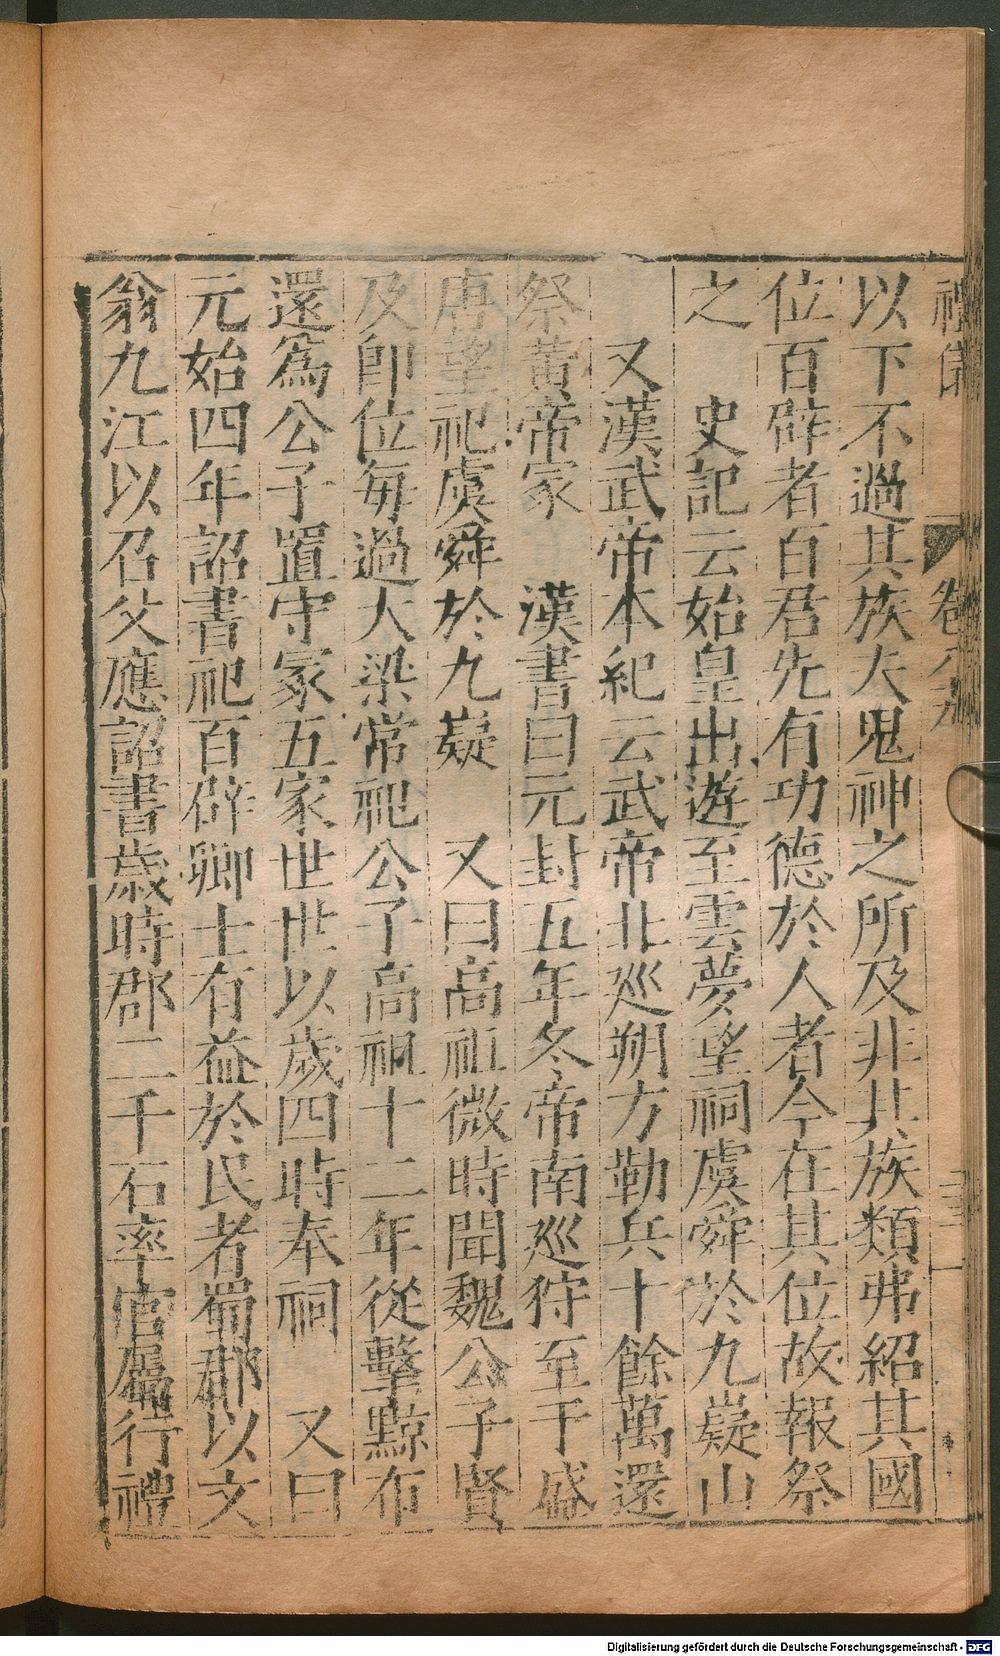 以下不過其族夫鬼神之所及非其族類弗紹其國
位百辟者百君先有功德於人者今在其位故報祭
之　史記云始皇出遊至雲夢望祠虞舜於九嶷山
　又漢武帝本紀云武帝北巡朔方勒兵十餘萬還
祭黃帝冢　漢書曰元封五年冬帝南巡狩至于盛
唐望祀虞舜於九嶷　又曰高祖微時聞魏公子賢
及卽位每過大梁常祀公子高祖十二年從擊黥布
還爲公子置守冢五家世世以歲四時奉祠　又曰
元始四年詔書祀百辟卿士有益於民者蜀郡以文
翁九江以召父應詔書歲時郡二千石率官屬行禮
卷八
Digitalisierung gefördert durch die Deutsche Forschungsgemeinschaft - DFG